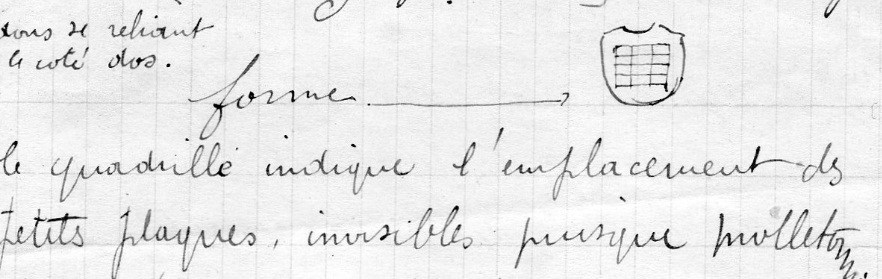 tous se reliant
le coté dos.
forme
le quadrillé indique l'emplacement des
petits plaques, invisibles puisque molleton